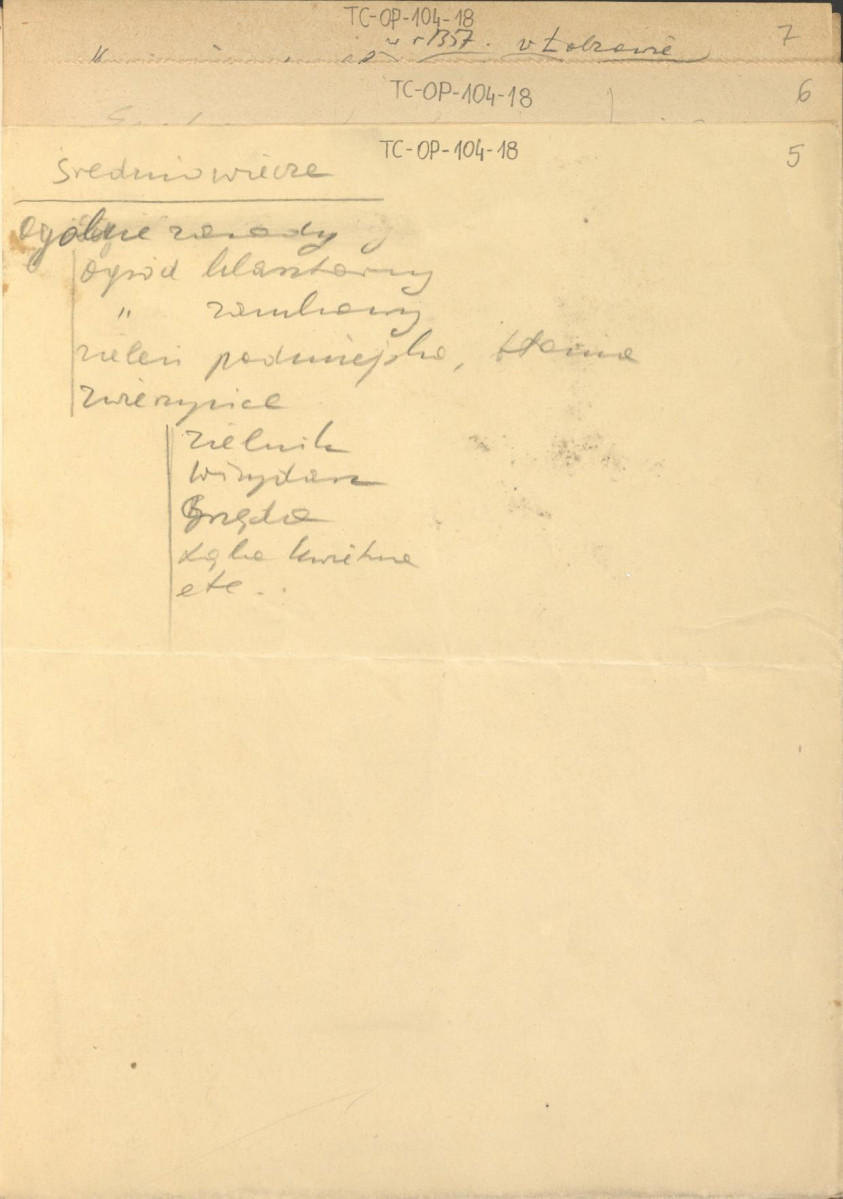 TC-OP-104-18
7
w r 1357. w Łobzowie
TC-OP-104-18
6
TC-OP-104-18
5
Średniowiecze
ogólne zasady
ogród klasztorny
" zamkowy
zieleń podmiejska, błonia
zwierzyniec
zielnik
wirydarz
grzęda
łąka kwietna
etc..